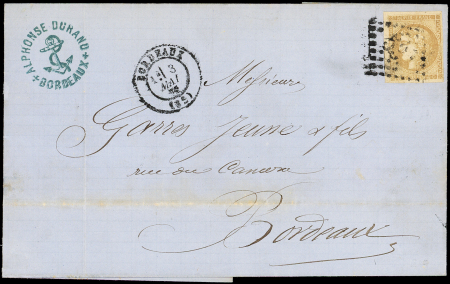 + ALPHONSE DURAND +
BORDEAUX
BORDEAUX
3
MAI
(32)
Messieurs
Garres Jeune & fils
rue du
Bordeaux